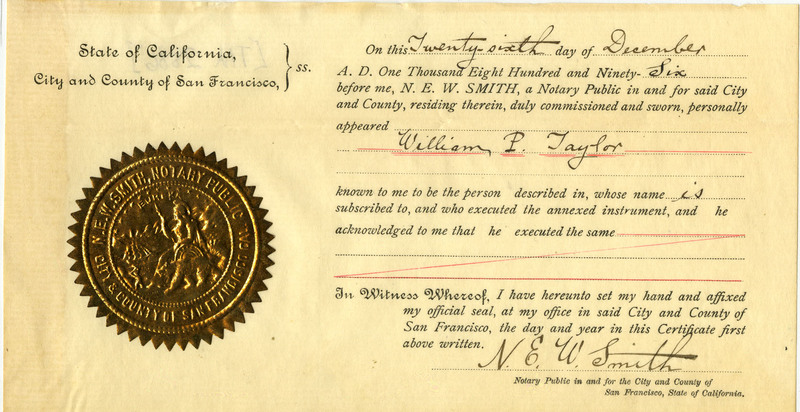 State of California,
City and County of San Francisco,
} ss.
On this Twenty-sixth day of December
A. D. One Thousand Eight Hundred and Ninety- Six
before me, N. E. W. SMITH, a Notary Public in and for said City
and County, residing therein, duly commissioned and sworn, personally
appeared
William P. Taylor
known to me to be the person described in, whose name is
subscribed to, and who executed the annexed instrument, and he
acknowledged to me that he executed the same
In Witness Whereof, I have hereunto set my hand and affixed
my official seal, at my office in said City and County of
San Francisco, the day and year in this Certificate first
above written.
N. E. W. Smith
Notary Public in and for the City and County of
San Francisco, State of California.
N. E. W. SMITH, NOTARY PUBLIC
CITY & COUNTY OF SAN FRANCISCO